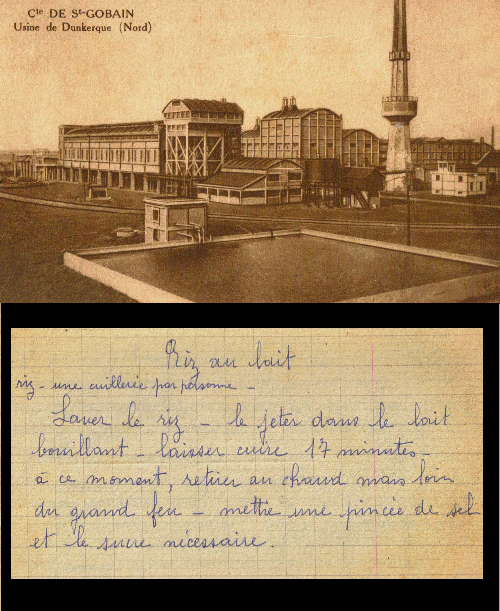 Cie DE St-GOBAIN
Usine de Dunkerque (Nord)
Riz au lait
riz - une cuillerée par personne -
Laver le riz - le jeter dans le lait
bouillant - laisser cuire 17 minutes -
à ce moment, retirer au chaud mais loin
du grand feu - mettre une pincée de sel
et le sucre nécessaire.